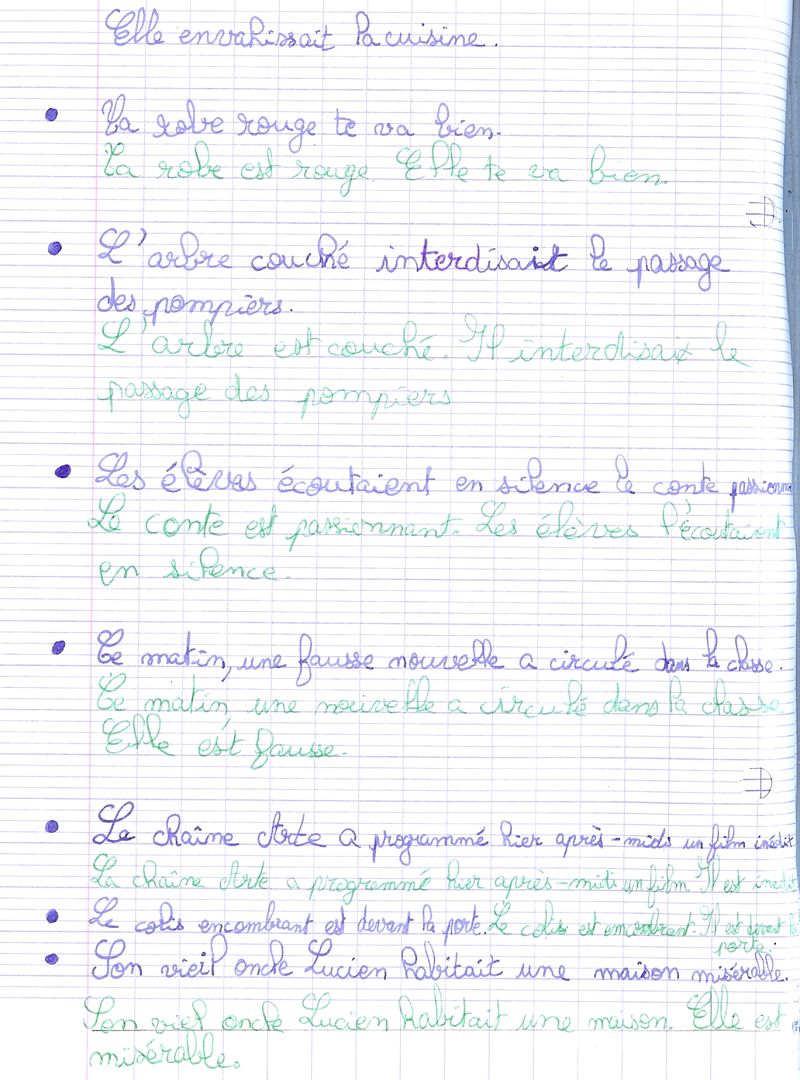 Elle envahissait la cuisine.
• Ta robe rouge te va bien.
Ta robe est rouge. Elle te va bien
• L'arbre couché interdisait le passage
des pompiers.
L'arbre est couché. Il interdisait le
passage des pompiers
• Les élèves écoutaient en silence le conte
Le conte est passionnant. Les élèves l'écoutaient
en silence.
• Ce matin, une fausse nouvelle a circulé dans la classe.
Ce matin, une nouvelle a circulé dans la classe.
Elle est fausse.
• La chaîne Arte a programmé hier après-midi un film inédit
La chaîne Arte a programmé hier après-midi un film. Il est inédit
• Le colis encombrant est devant la porte. Le colis est encombrant. Il est devant la
porte.
• Son vieil oncle Lucien habitait une maison misérable.
Son viel oncle Lucien habitait une maison. Elle est
misérable.